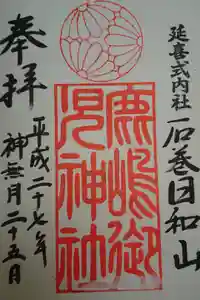 延喜式内社 石巻日和山
鹿嶋御
児神社
奉拝
平成二十七年
神無月二十五日